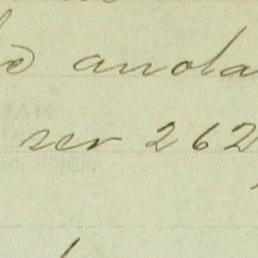 anota
ser 262